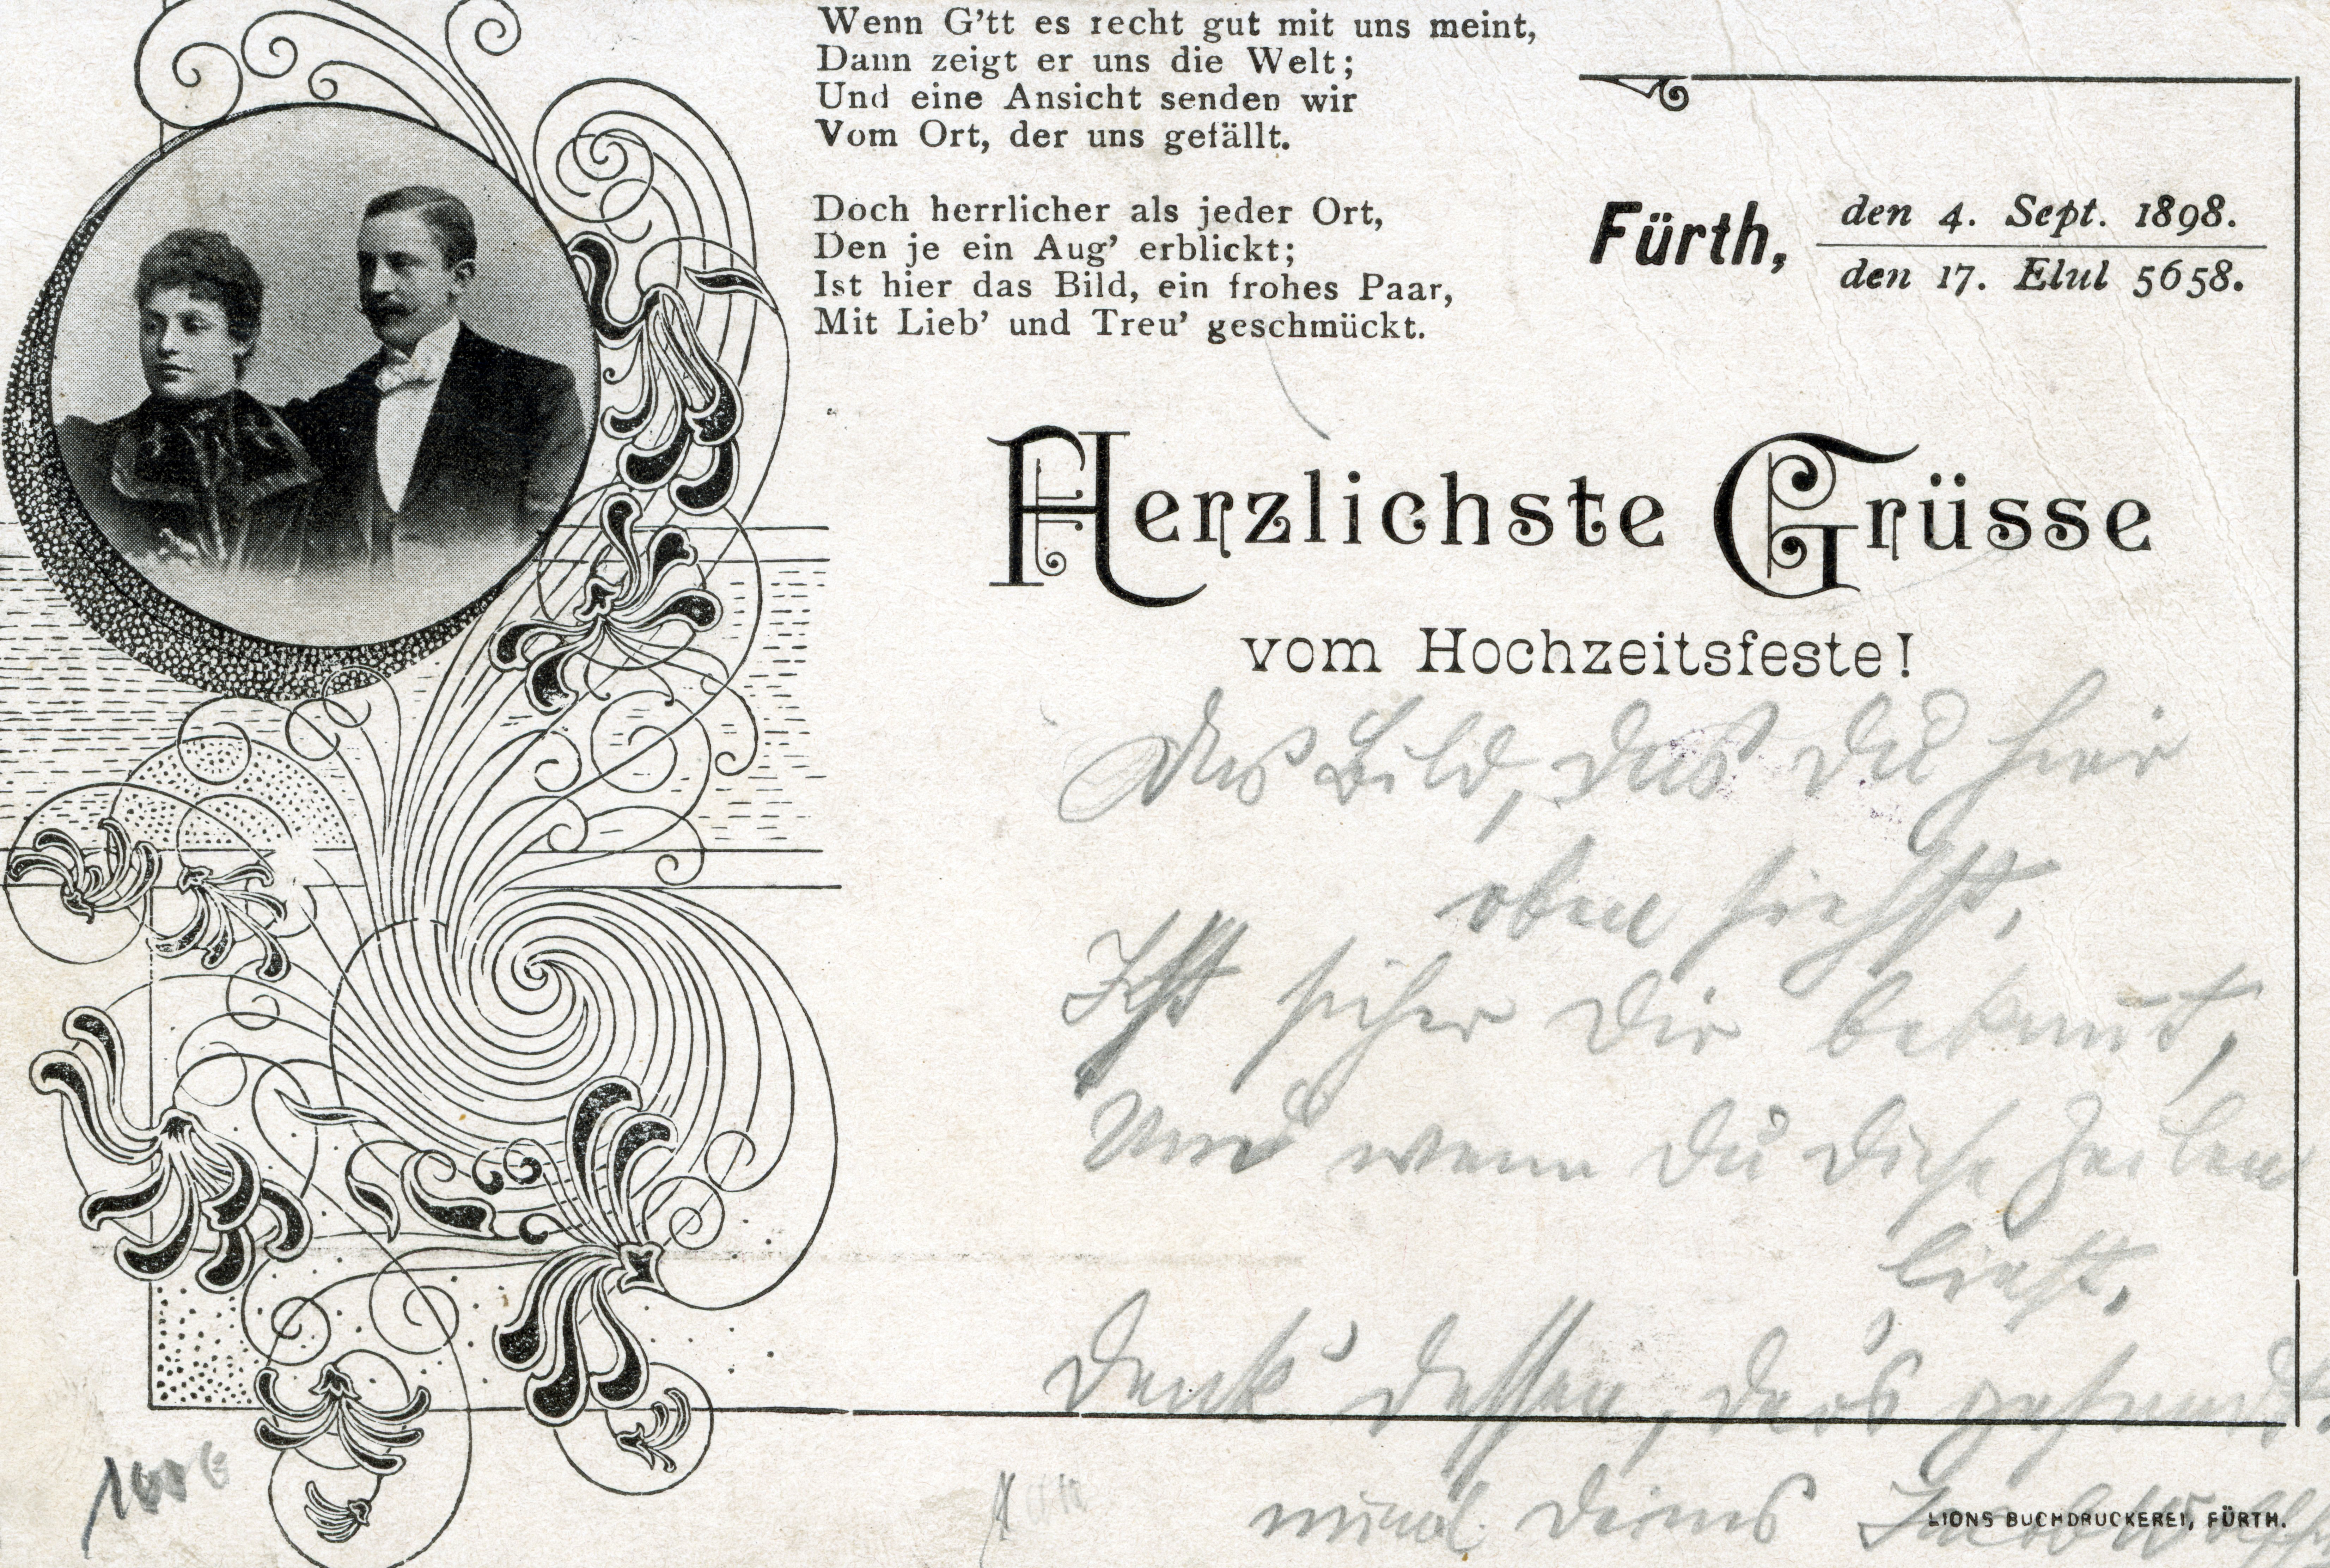 Wenn G'tt es recht gut mit uns meint,
Dann zeigt er uns die Welt;
Und eine Ansicht senden wir
Vom Ort, der uns gefällt.
Doch herrlicher als jeder Ort,
Den je ein Aug' erblickt;
Ist hier das Bild, ein frohes Paar,
Mit Lieb' und Treu' geschmückt.
Fürth,
den 4. Sept. 1898.
den 17. Elul 5658.
Herzlichste Grüsse
vom Hochzeitsfeste!
Das Bild, das Du hier
oben siehst,
Ist sicher Dir bekannt,
Und wenn Du diese Zeilen
liest,
Denk' dessen, der's gesandt.
LIONS BUCHDRUCKEREI, FÜRTH.